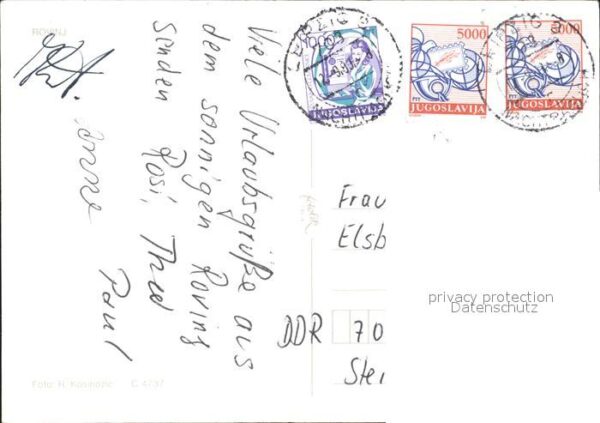 ROVINJ
Viele Urlaubsgrüße aus
dem sonnigen Roving
senden Rosi, Theo
Anne Paul
5000
JUGOSLAVIJA
5000
JUGOSLAVIJA
JUGOSLAVIJA
LEIPZIG
Frau
Elsb
DDR 70
Stei
privacy protection
Datenschutz
Foto: H. Kosinožić C 4737